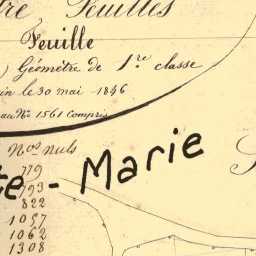 tre Feuilles
Feuille
Géomètre de 1.re classe
in le 30 mai 1846
au No 1561 compris
Nos nuls
779
te - Marie
793
822
1057
1062
1308